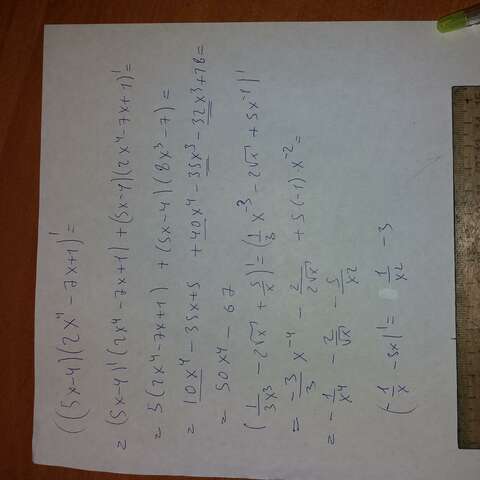 ((5x-4)(2x⁴-7x+1))'=
= (5x-4)'(2x⁴-7x+1)+(5x-4)(2x⁴-7x+1)'=
= 5(2x⁴-7x+1)+(5x-4)(8x³-7)=
= 10x⁴-35x+5+40x⁴-35x³-32x³+28=
= 50x⁴-67
(1/3x³ - 2√x + 5/x)'=(1/3 x⁻³ - 2√x + 5x⁻¹)'
= -3/3 x⁻⁴ - 2/2√x + 5(-1)·x⁻²=
= -1/x⁴ - 2/√x - 5/x²
(-1/x - 3x)'= 1/x² - 3